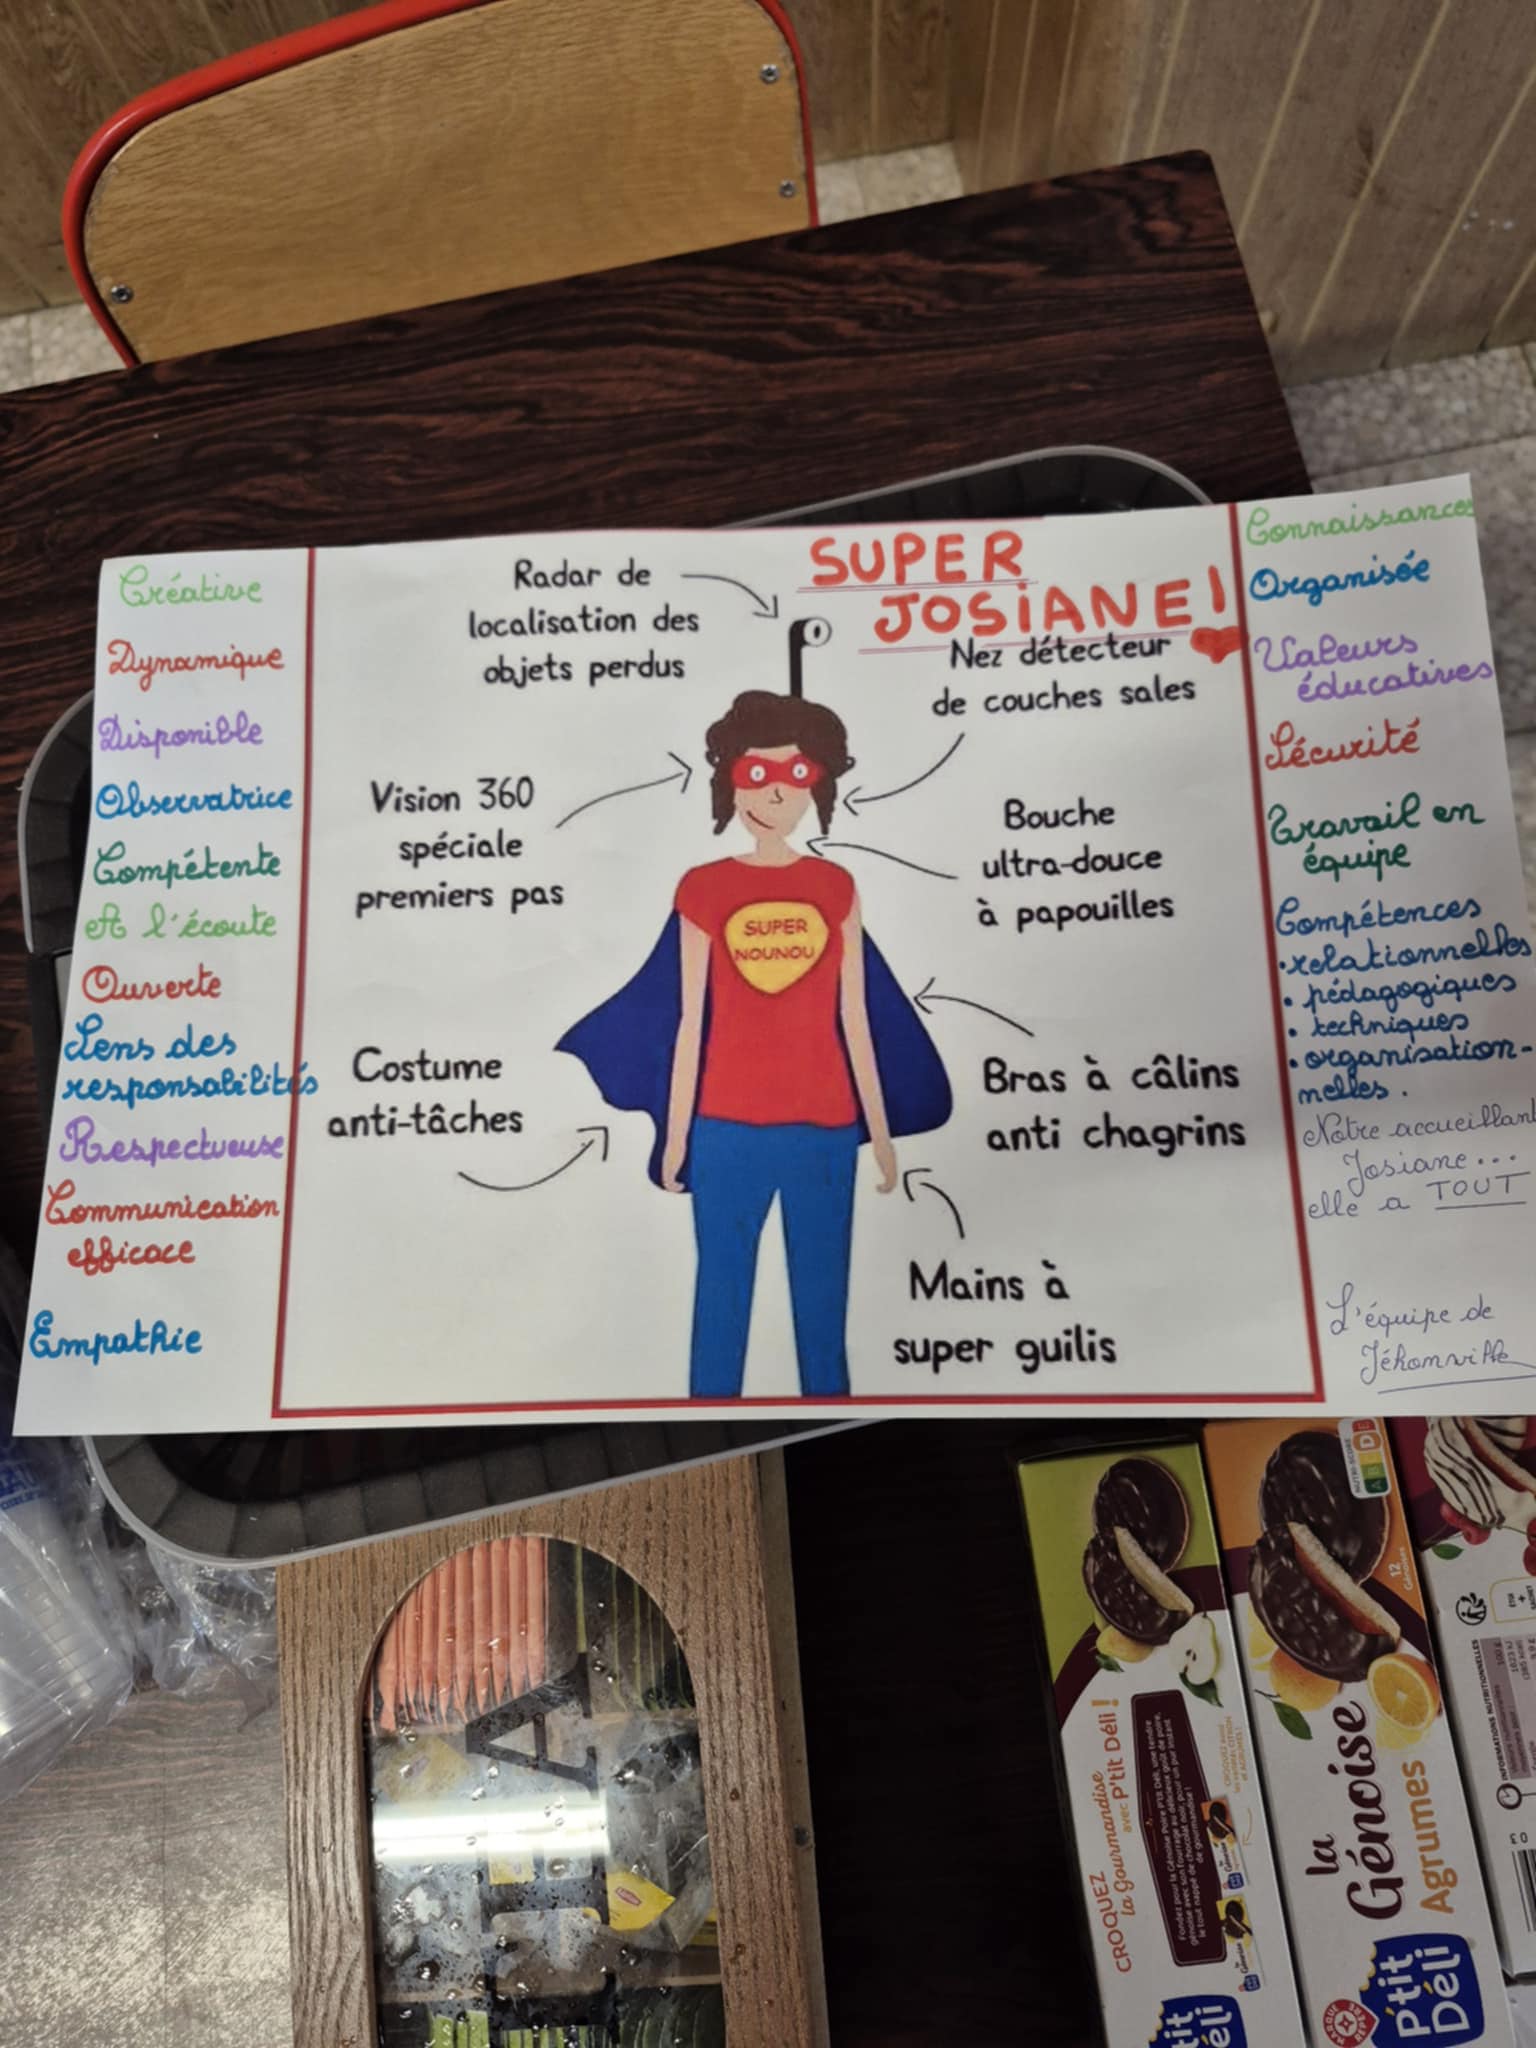 Créative
Dynamique
Disponible
Observatrice
Compétente
A l'écoute
Ouverte
Sens des
responsabilités
Respectueuse
Communication
efficace
Empathie
SUPER
JOSIANE!
Radar de
localisation des
objets perdus
Nez détecteur
de couches sales
Vision 360
spéciale
premiers pas
Bouche
ultra-douce
à papouilles
SUPER
NOUNOU
Costume
anti-tâches
Bras à câlins
anti chagrins
Mains à
super guilis
Connaissances
Organisée
Valeurs
éducatives
Sécurité
Travail en
équipe
Compétences
• relationnelles
• pédagogiques
• techniques
• organisation-
nelles.
Notre accueillant
Josiane...
elle a TOUT
L'équipe de
Jéhonville
CROQUEZ
la Gourmandise
avec P'tit Déli !
tit
éli
NUTRI-SCORE
12
Génoises
la
Génoise
Agrumes
P'tit
Déli
MARQUE
REPÈRE
INFORMATIONS NUTRITIONNELLES